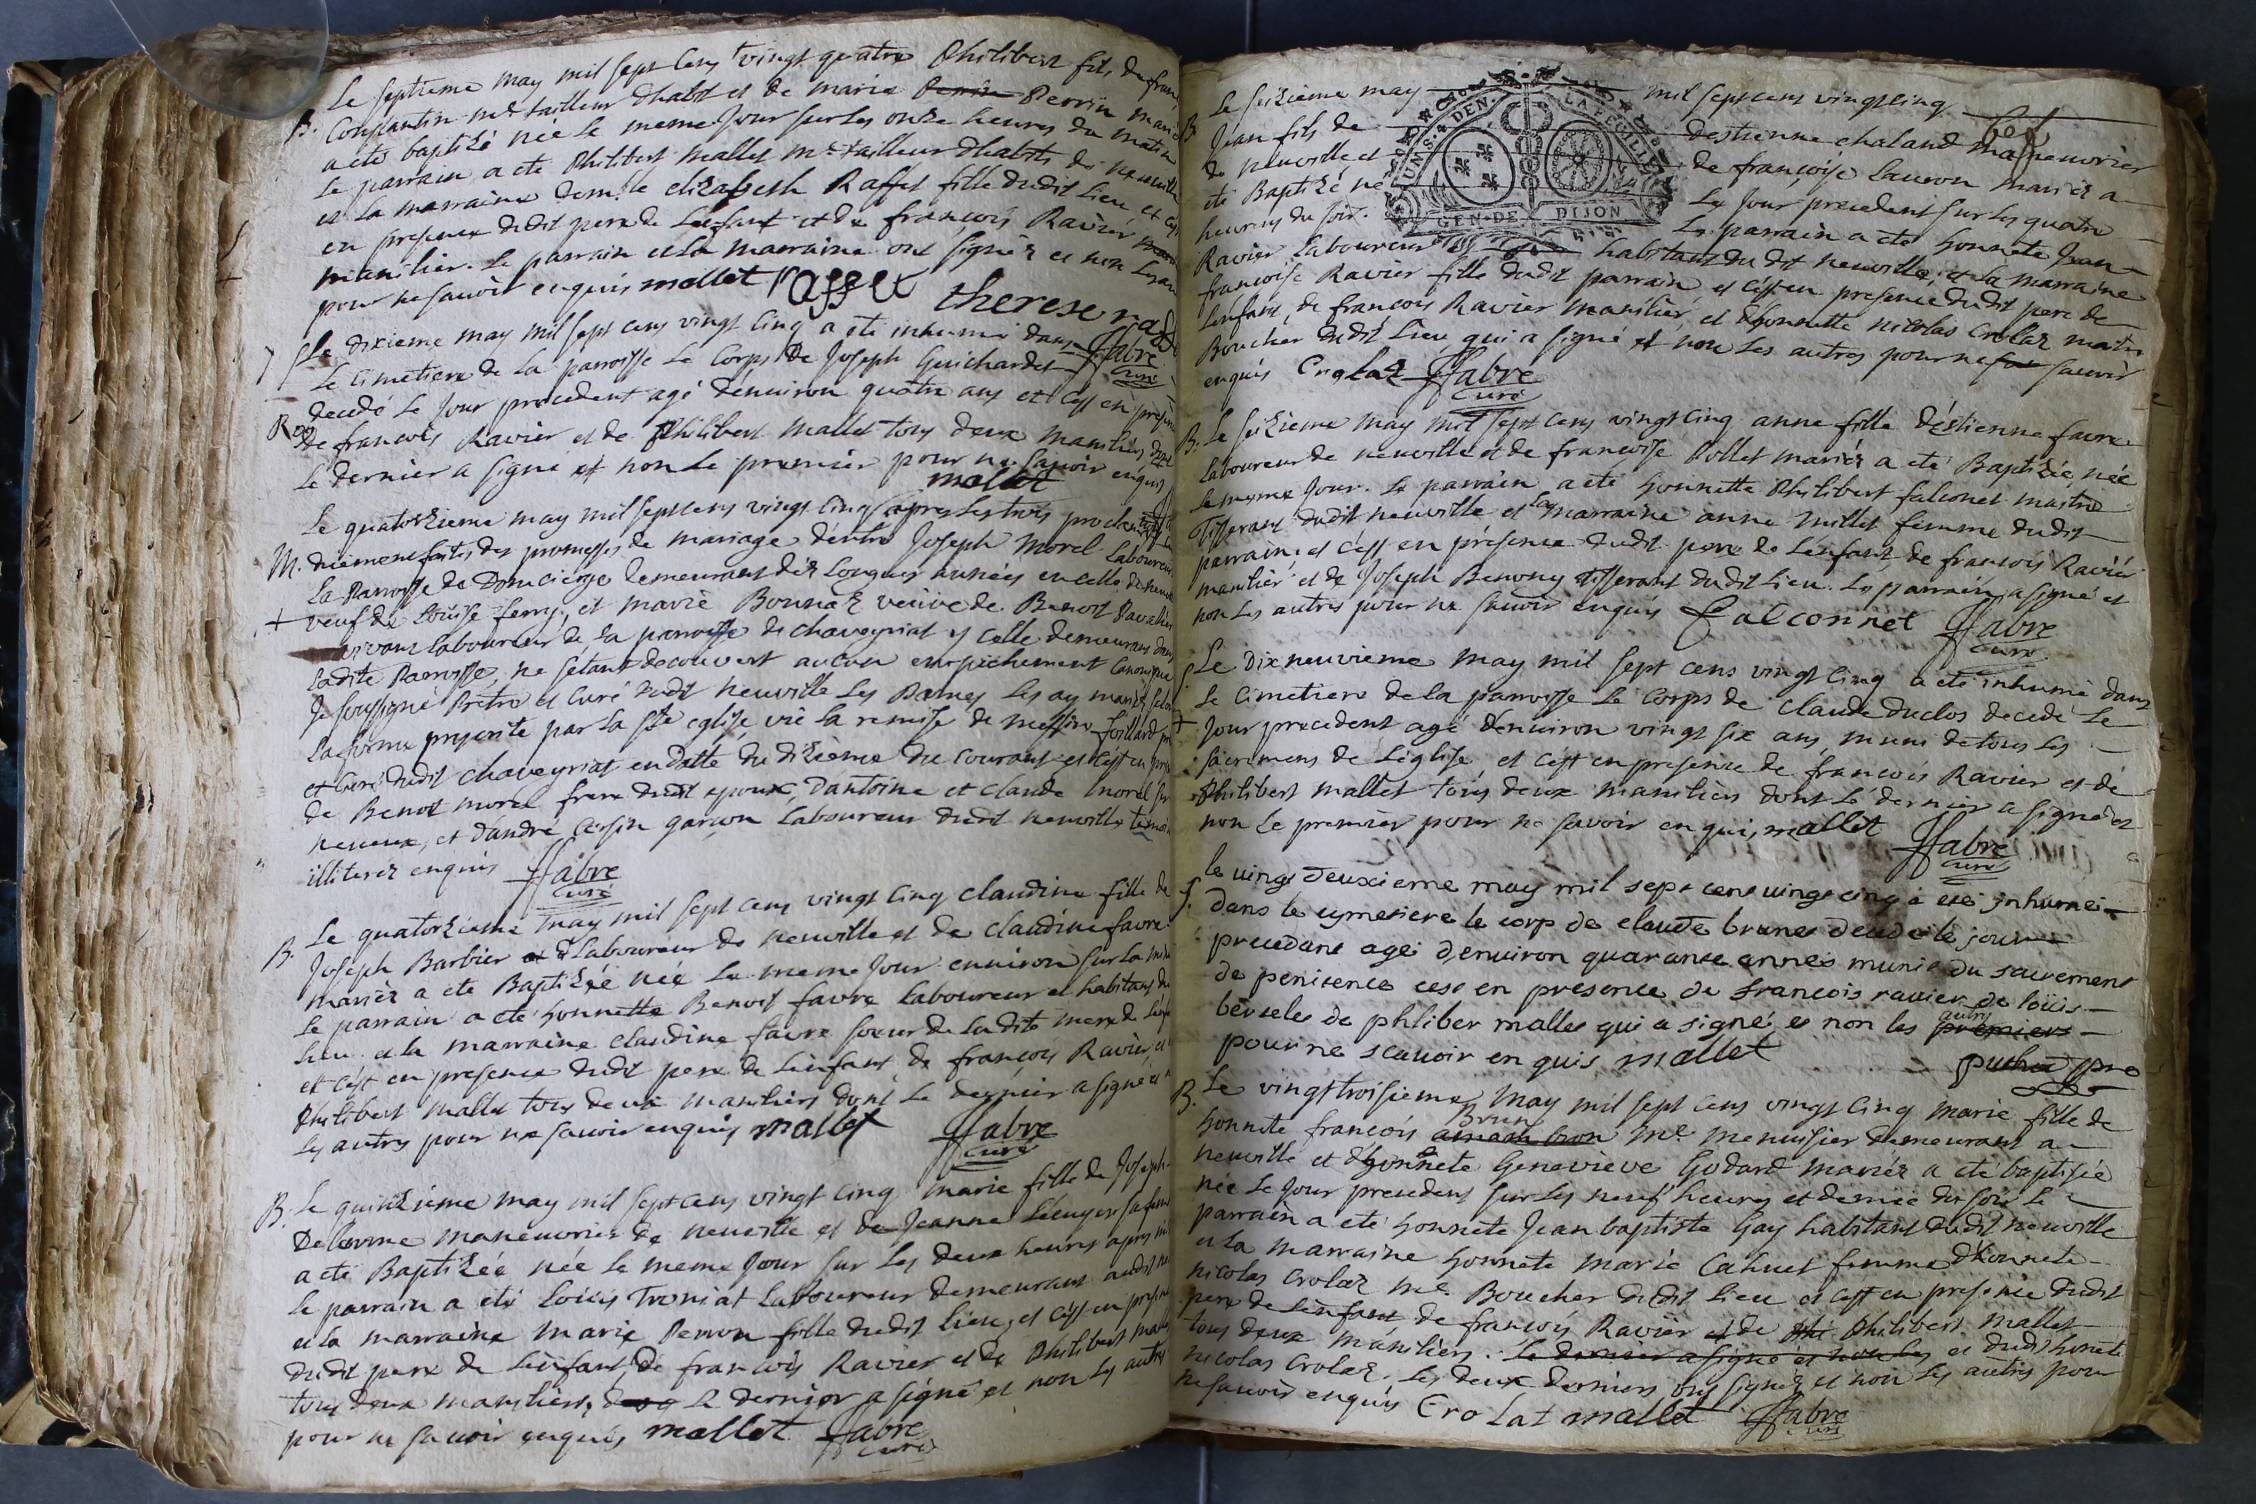 Le septieme may mil sept cens vingt quatre Philibert fils de fran
B. Constantin me tailleur dhabit et de marie Perrin Perrin mariés
a eté baptizé née le meme Jour sur les onze heures du matin
Le parrain a eté Philibert mallet me tailleur dhabits de neuville
et La marraine demlle elizabeth Raffet fille dudit Lieu et cest
en presence dudit pere de Lenfant et de francois Ravier
manilier. Le parrain et La marraine ont signéz et non Les au
pour ne savoir enquis mallet raffet therese raffet
S Le dixieme may mil sept cens vingt cinq a eté inhumé dans fabre
Le Cimetiere de La paroisse Le Corps de Joseph Guichardet curé
decedé Le Jour precedent agé denviron quatre ans et cest en presence
de francois Ravier et de Philibert mallet tous deux maniliers dont
Le dernier a signé et non Le premier pour ne savoir enquis
mallet
Le quatorzieme may mil sept cens vingt cinq apres Les trois procla
M. duement faites des promesses de mariage d'entre Joseph morel Laboureur
La Paroisse de Domcierge demeurant déz Longues années en celle de neuv
+ veuf de Loüise ferry, et marie Bonnaz veuve de Benoit Pavalier
vivant Laboureur de La paroisse de chaveyriat et celle demeurant dans
Ladite Paroisse, ne sétant decouvert aucun empechement Canonique
Je soussigné Prêtre et Curé dudit neuville Les Dames Les ay mariéz selon
La forme prescrite par La ste eglise, vüe La remise de messire foillard pr
et Curé dudit chaveyriat en datte du dixieme du courant et c'est en pres
de Benoit morel frere dudit epoux, Dantoine et claude morel ses
neveux, et d'andré Cersin garçon Laboureur dudit neuville temoins
illiteréz enquis fabre
curé
Le quatorzieme may mil sept cens vingt cinq claudine fille de
B. Joseph Barbier Laboureur de neuville et de claudine favre
mariéz a eté Baptizée née Le meme Jour environ sur La mi
Le parrain a eté honnette Benoit favre Laboureur et habitant du
Lieu et La marraine claudine favre soeur de Ladite mere de Lenf
et c'est en presence dudit pere de Lenfant de francois Ravier et
Philibert mallet tous deux maniliers dont Le dernier a signé et
Les autres pour ne savoir enquis mallet fabre
curé
B. Le quinzieme may mil sept cens vingt cinq marie fille de Joseph
Delorme maneuvrier de neuville et de Jeanne Lécuyer sa femme
a eté Baptizée née Le meme Jour sur Les deux heures apres mi
Le parrain a eté Loüis Troniat Laboureur demeurant audit
et La marraine marie Perron fille dudit lieu, et c'est en presence
dudit pere de Lénfant, de francois Ravier et de Philibert mallet
tous deux maniliers, Le dernier a signé et non Les autres
pour ne savoir enquis mallet fabre
curé
Le seizieme may mil sept cens vingt cinq
B. Jean fils de destienne chaland maneuvrier
de neuville et de françoise Lauron mariéz a
eté Baptizé né Le Jour precedent sur Les quatre
heures du soir. Le parrain a eté honnete Jean
Ravier Laboureur habitant du dit neuville, et La marraine
francoise Ravier fille dudit parrain et c'est en presence dudit pere de
Lenfant, de francois Ravier manilier, et dhonnette nicolas Crolaz maitre
Boucher dudit Lieu qui a signé et non Les autres pour ne savoir
enquis Crolaz fabre
curé
UN S. 4 DEN. LA FEUILLE
GEN. DE DIJON
B. Le seizieme may mil sept cens vingt cinq anne fille d'éstienne favre
Laboureur de neuville et de francoise Pollet mariéz a eté Baptizée née
Le meme Jour. Le parrain a eté honnette Philibert falconet maitre
Tisserant dudit neuville et La marraine anne millet femme dudit
parrain, et c'est en présence dudit pere de Lenfant, de francois Ravier
manilier et de Joseph Benony tisserant dudit Lieu. Le parrain a signé et
non Les autres pour ne savoir enquis falconnet fabre
curé
S Le dix neuvieme may mil sept cens vingt cinq a eté inhumé dans
Le Cimetiere de La paroisse Le Corps de claude Duclos decedé Le
+ Jour precedent agé denviron vingt six ans, muni de tous Les
sacremens de L'église, et c'est en presence de francois Ravier et de
Philibert mallet tous deux maniliers dont Le dernier a signé et
non Le premier pour ne savoir enquis, mallet fabre
curé
S. le uingt deuxieme may mil sept cent uingt cinq a eté jnhumé
dans le cymetiere le corp de claude brunet decedé le jour
precedant agé d'enuiron quarante années munie du sacrement
de penitence cest en presence de francois rauier de loüis
berselet de phliber mallet qui a signé et non les premiers autres
pour ne scauoir en quis mallet
B. Le vingt troisieme may mil sept cens vingt cinq marie fille de
honnete françois Brun me menuisier demeurant a
neuville et d'honnete Geneviéve Godard mariéz a eté baptisée
née Le Jour precedent sur Les neuf heures et demie du soir Le
parrain a eté honnete Jean baptiste Gay habitant dudit neuville
et La marraine honnete marie Cahuet femme d'honnete
nicolas Crolaz me Boucher dudit lieu et c'est en presence dudit
pere de Lenfant de françois Ravier et de Philibert mallet
tous deux maniliers. Le dernier a signé et non Les et dudit honete
nicolas Crolaz. Les deux derniers ont signéz et non Les autres pour
ne savoir enquis Crolat mallet fabre
curé